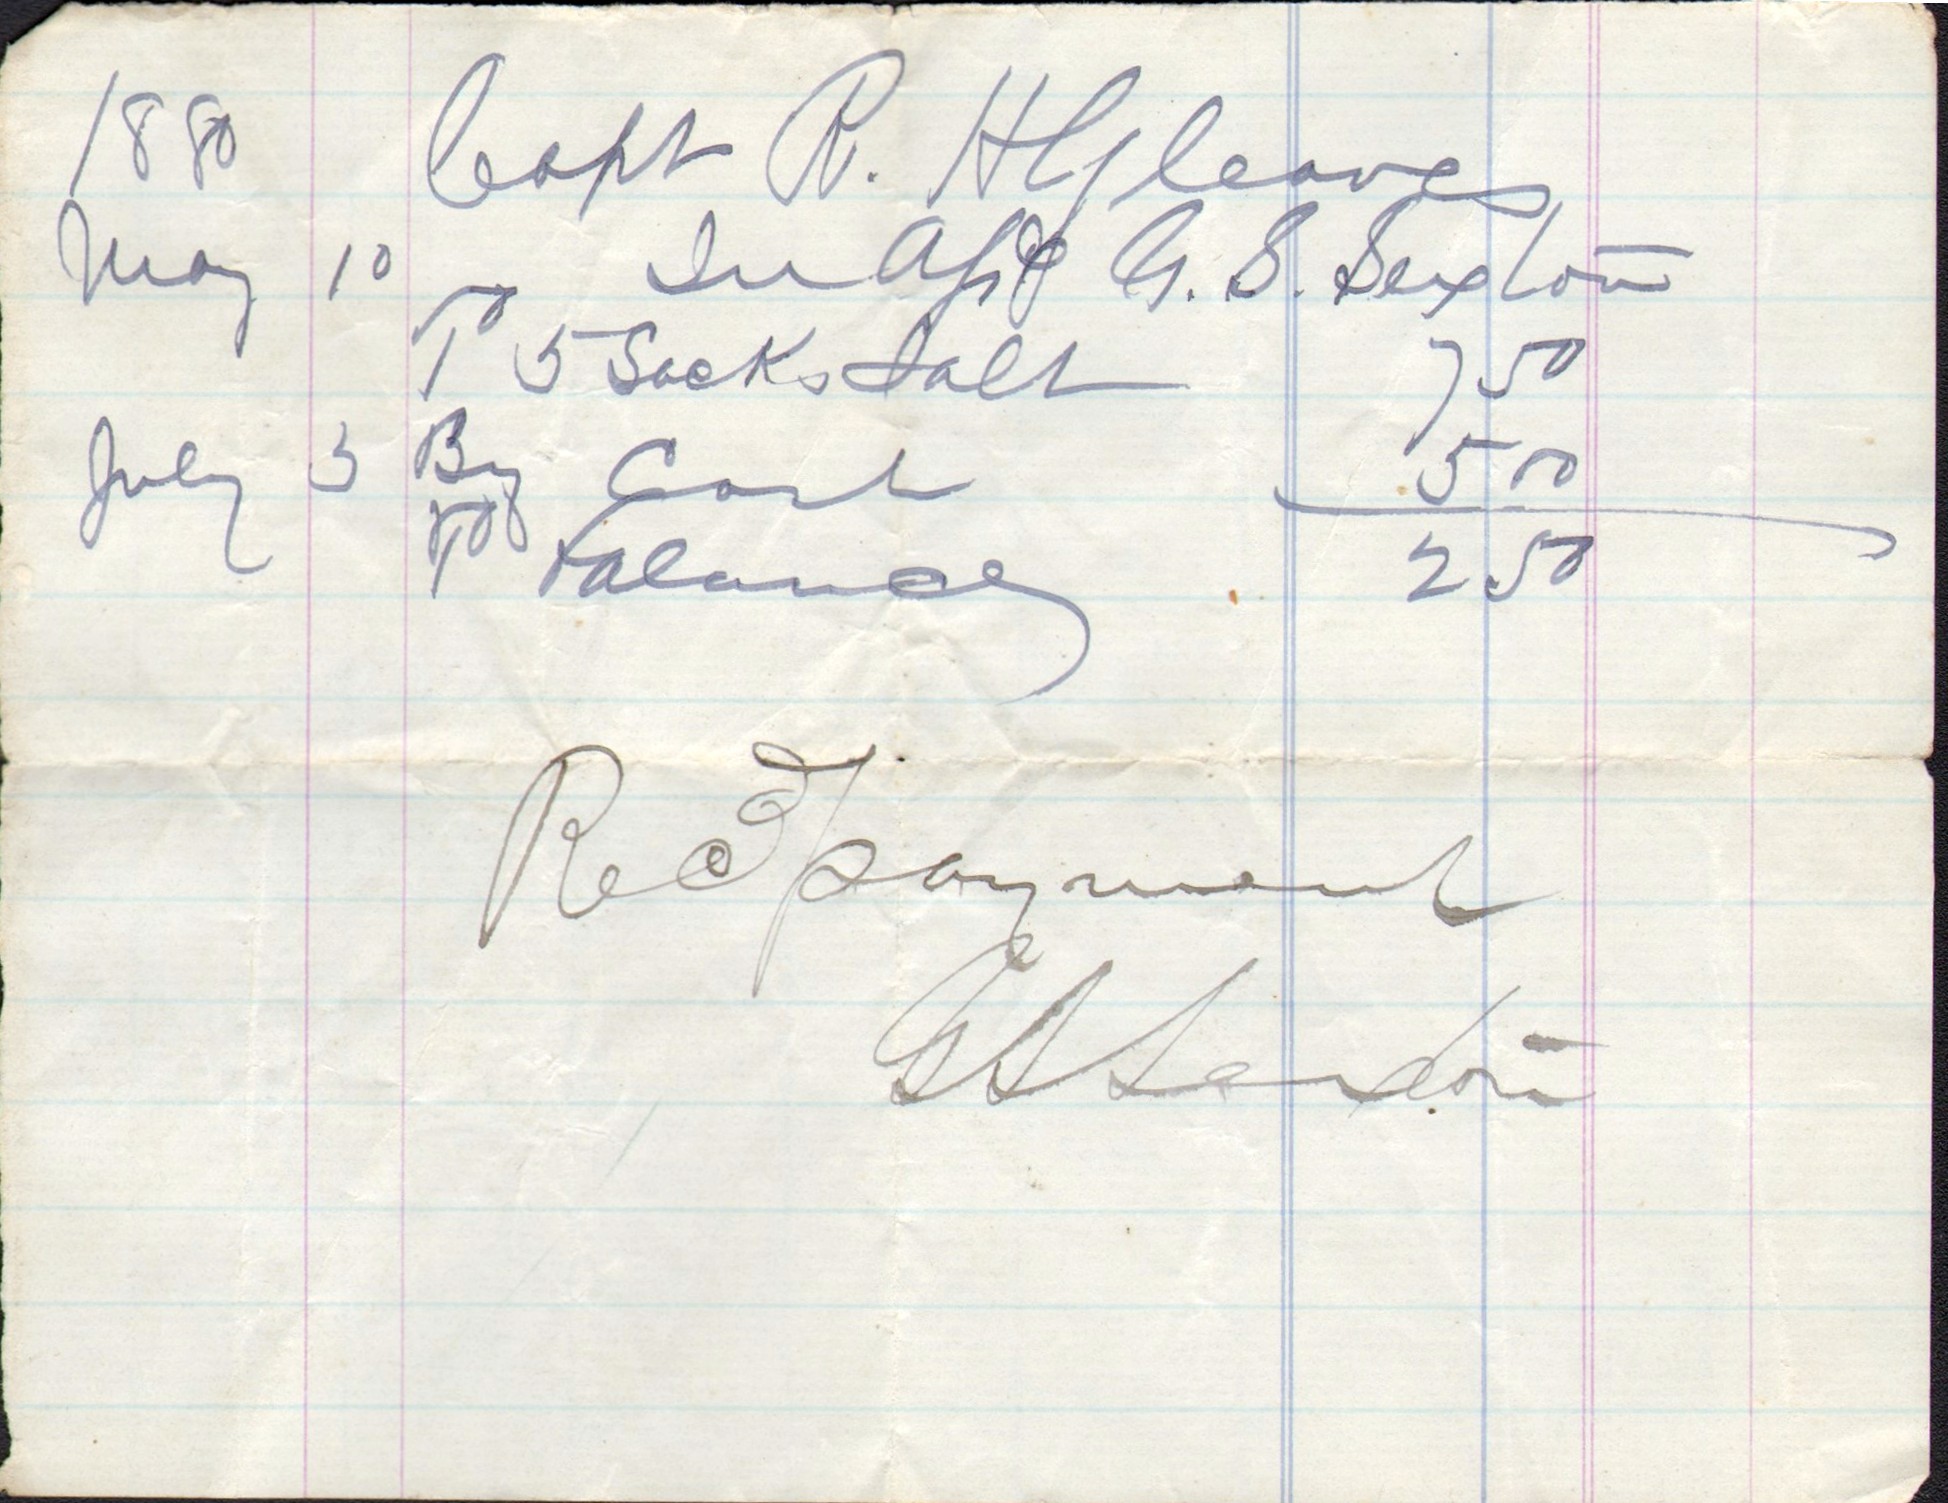 1880 Capt R. H Gleaves
May 10 In A/c G. S. Sexton
To 5 Sacks Salt 7 50
July 5 By Cash 5 00
To balance 2 50
Recd payment
G S Sexton